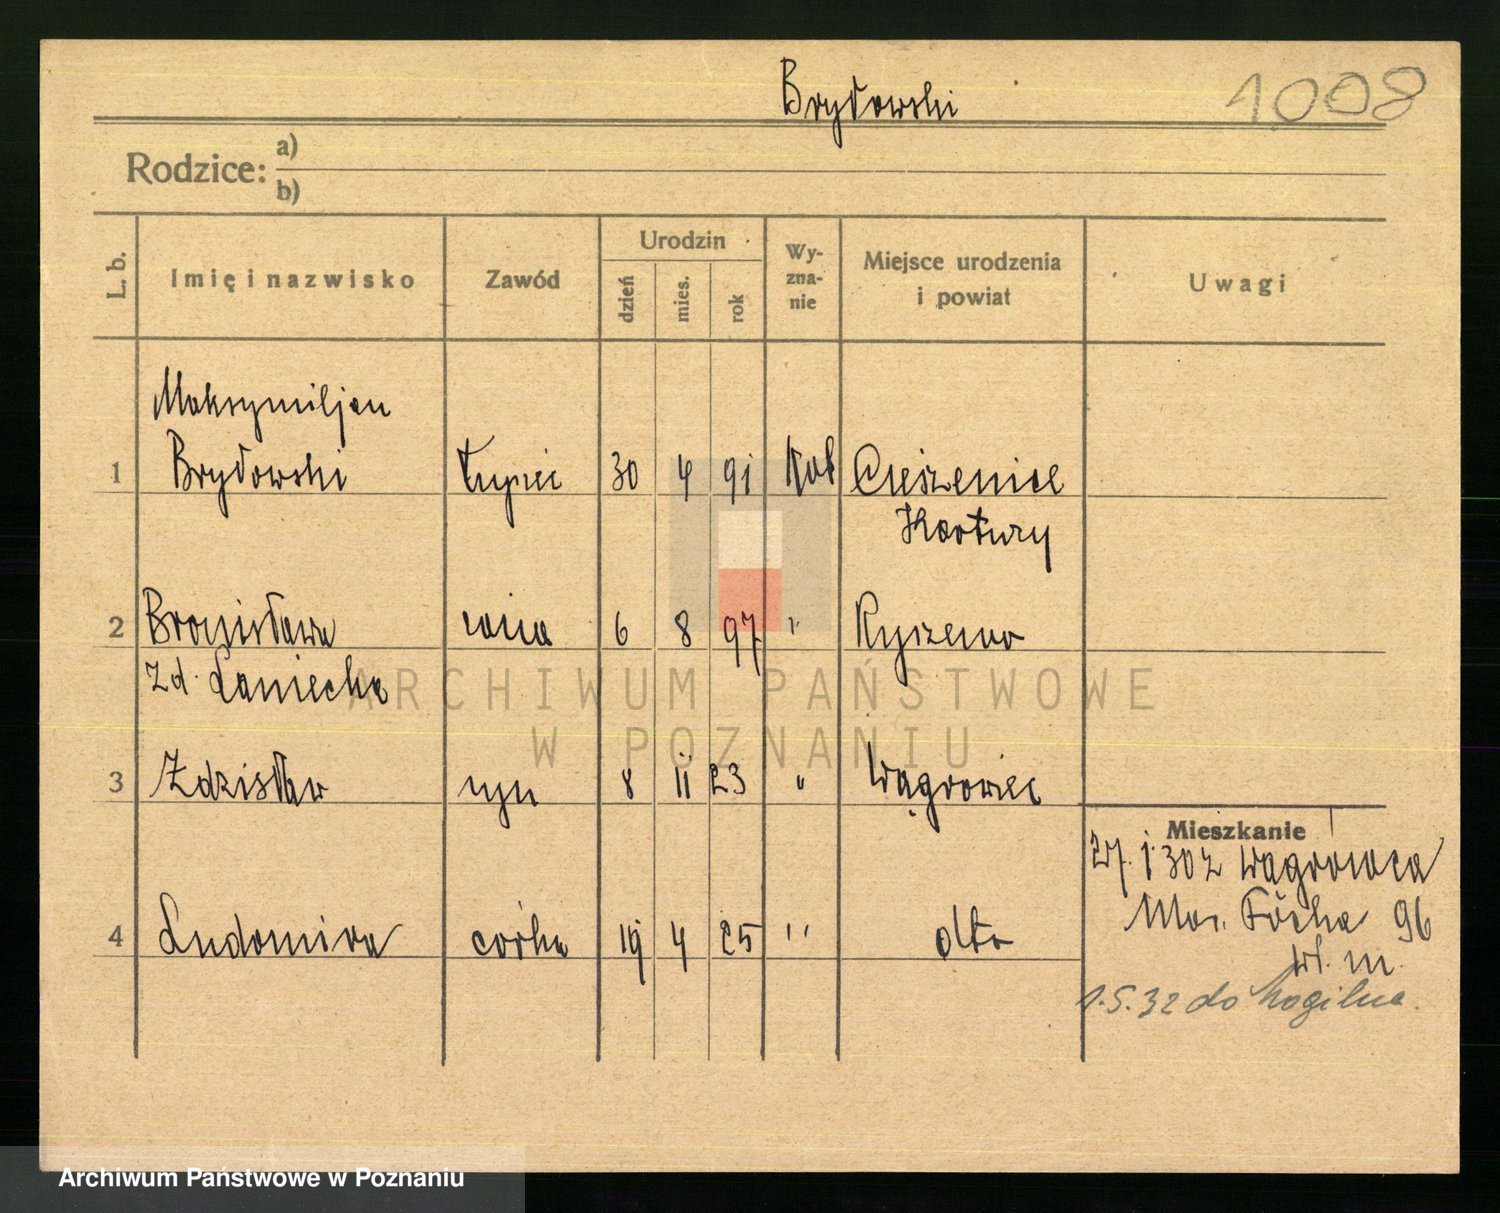 Brydowski 1008
Rodzice: a)
b)
L. b. Imię i nazwisko Zawód Urodzin dzień mies. rok Wy-zna-nie Miejsce urodzenia i powiat Uwagi
Maksymiljan
1 Brydowski kupiec 30 4 91 Kat
Kartuzy
2 Bronisława żona 6 8 97 " Ryszewo
zd. Laniecka
3 Zdzisław syn 8 11 23 " Wągrowiec
Mieszkanie
27. 1 30 z Wągrowca
4 Ludomira córka 19 4 25 " dtto
Mar. Focha 96
w. m.
1.5.32 do Mogilna.
ARCHIWUM PAŃSTWOWE
W POZNANIU
Archiwum Państwowe w Poznaniu